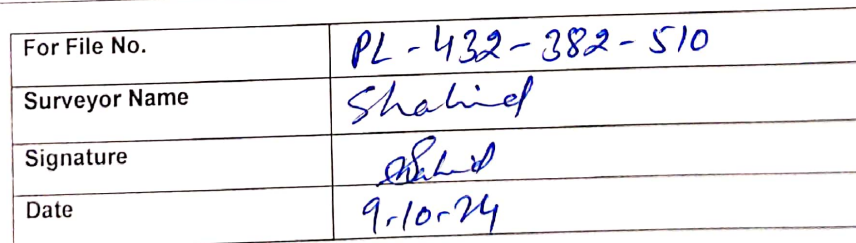 For File No. PL - 432 - 382 - 510
Surveyor Name Shahid
Signature Shahid
Date 9-10-24